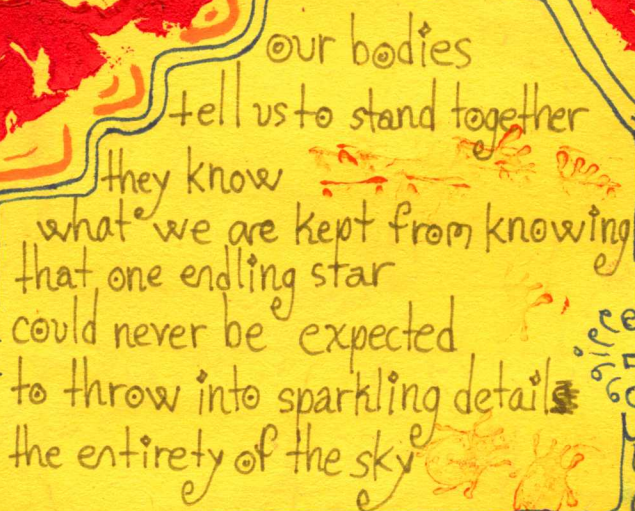 our bodies
tell us to stand together
they know
what we are kept from knowing
that one endling star
could never be expected
to throw into sparkling detail
the entirety of the sky